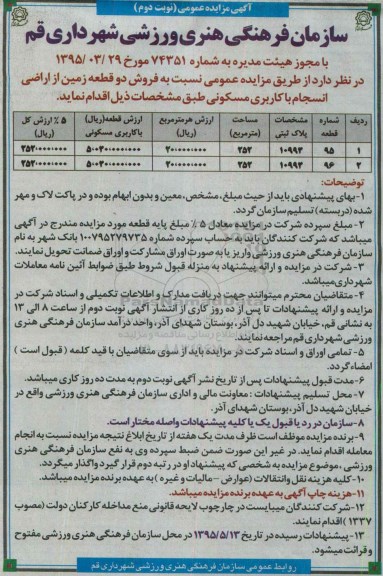 آگهی مزایده عمومی (نوبت دوم)
سازمان فرهنگی هنری ورزشی شهرداری قم
با مجوز هیئت مدیره به شماره ۷۴۳۵۱ مورخ ۲۹ /۰۳ /۱۳۹۵
در نظر دارد از طریق مزایده عمومی نسبت به فروش دو قطعه زمین از اراضی
انسجام با کاربری مسکونی طبق مشخصات ذیل اقدام نماید.
ردیف شماره قطعه مشخصات پلاک ثبتی مساحت (مترمربع) ارزش هرمترمربع (ریال) ارزش قطعه(ریال) با کاربری مسکونی ۵ % ارزش کل (ریال)
۱ ۹۵ ۱۰۹۹۳ ۲۵۲
۲ ۹۶ ۱۰۹۹۳ ۲۵۲
توضیحات:
۱-بهای پیشنهادی باید از حیث مبلغ، مشخص، معین و بدون ابهام بوده و در پاکت لاک و مهر
شده (دربسته) تسلیم سازمان گردد.
۲-مبلغ سپرده شرکت در مزایده معادل ۵ % مبلغ پایه قطعه مورد مزایده مندرج در آگهی
میباشد که شرکت کنندگان باید به حساب سپرده شماره ۱۰۰۷۹۵۲۷۹۷۳۵ بانک شهر به نام
سازمان فرهنگی هنری ورزشی واریز یا به صورت اوراق مشارکت و اوراق ضمانت تحویل نمایند.
۳-شرکت در مزایده و ارائه پیشنهاد به منزله قبول شروط طبق ضوابط آئین نامه معاملات
شهرداری میباشد.
۴-متقاضیان محترم میتوانند جهت دریافت مدارک و اطلاعات تکمیلی و اسناد شرکت در
مزایده و ارائه پیشنهادات تا پس از ده روز کاری از انتشار آگهی نوبت دوم از ساعت ۸ الی ۱۳
به نشانی قم، خیابان شهید دل آذر، بوستان شهدای آذر، واحد درآمد سازمان فرهنگی هنری
ورزشی شهرداری قم مراجعه نمایند.
۵-تمامی اوراق و اسناد شرکت در مزایده باید از سوی متقاضیان با قید کلمه ( قبول است )
امضاء گردد.
۶-مدت قبول پیشنهادات پس از تاریخ نشر آگهی نوبت دوم به مدت ده روز کاری میباشد.
۷-محل تسلیم پیشنهادات : معاونت مالی و اداری سازمان فرهنگی هنری ورزشی واقع در
خیابان شهید دل آذر، بوستان شهدای آذر.
۸-سازمان در رد یا قبول یک یا کلیه پیشنهادات واصله مختار است.
۹-برنده مزایده موظف است ظرف مدت یک هفته از تاریخ ابلاغ نتیجه مزایده نسبت به انجام
معامله اقدام نماید. در غیر این صورت ضمن ضبط سپرده وی به نفع سازمان فرهنگی هنری
ورزشی ، موضوع مزایده به شخصی که پیشنهاد او در رتبه دوم قرار گیرد واگذار میگردد.
۱۰-کلیه هزینه نقل وانتقالات (عوارض -مالیات و غیره ) به عهده برنده مزایده میباشد.
۱۱-هزینه چاپ آگهی به عهده برنده مزایده میباشد.
۱۲-شرکت کنندگان میبایست در چارچوب لایحه قانونی منع مداخله کارکنان دولت (مصوب
۱۳۳۷ ) اقدام نمایند.
۱۳-پیشنهادات رسیده در تاریخ ۱۳۹۵/۵/۱۳ در محل سازمان فرهنگی هنری ورزشی مفتوح
و قرائت میشود.
روابط عمومی سازمان فرهنگی هنری ورزشی شهرداری قم